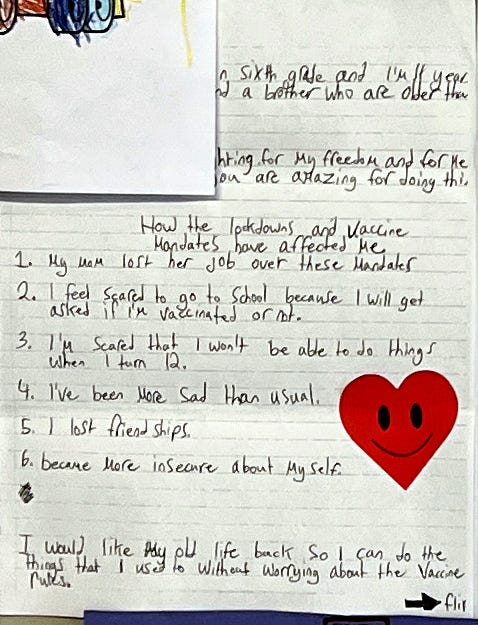 n sixth grade and I'm 11 year
nd a brother who are older than
hting for My freedom and for Me
you are amazing for doing this
How the lockdowns and Vaccine
Mandates have affected Me
1. My mom lost her job over these Mandates
2. I feel scared to go to School because I will get
asked if I'm vaccinated or not.
3. I'm Scared that I won't be able to do things
when I turn 12.
4. I've been More Sad than usual.
5. I lost friendships.
6. became More insecure about Myself.
I would like My old life back So I can do the
things that I used to without worrying about the Vaccine
rules.
flip